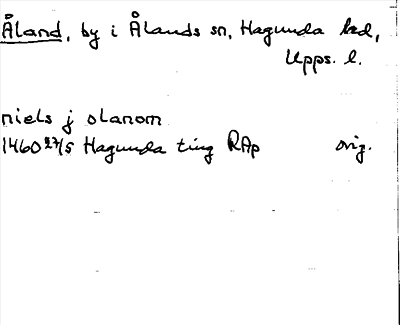 Åland, by i Ålands sn, Hagunda hd,
Upps. l.
niels j olanom
1460 27/5 Hagunda ting RAp orig.